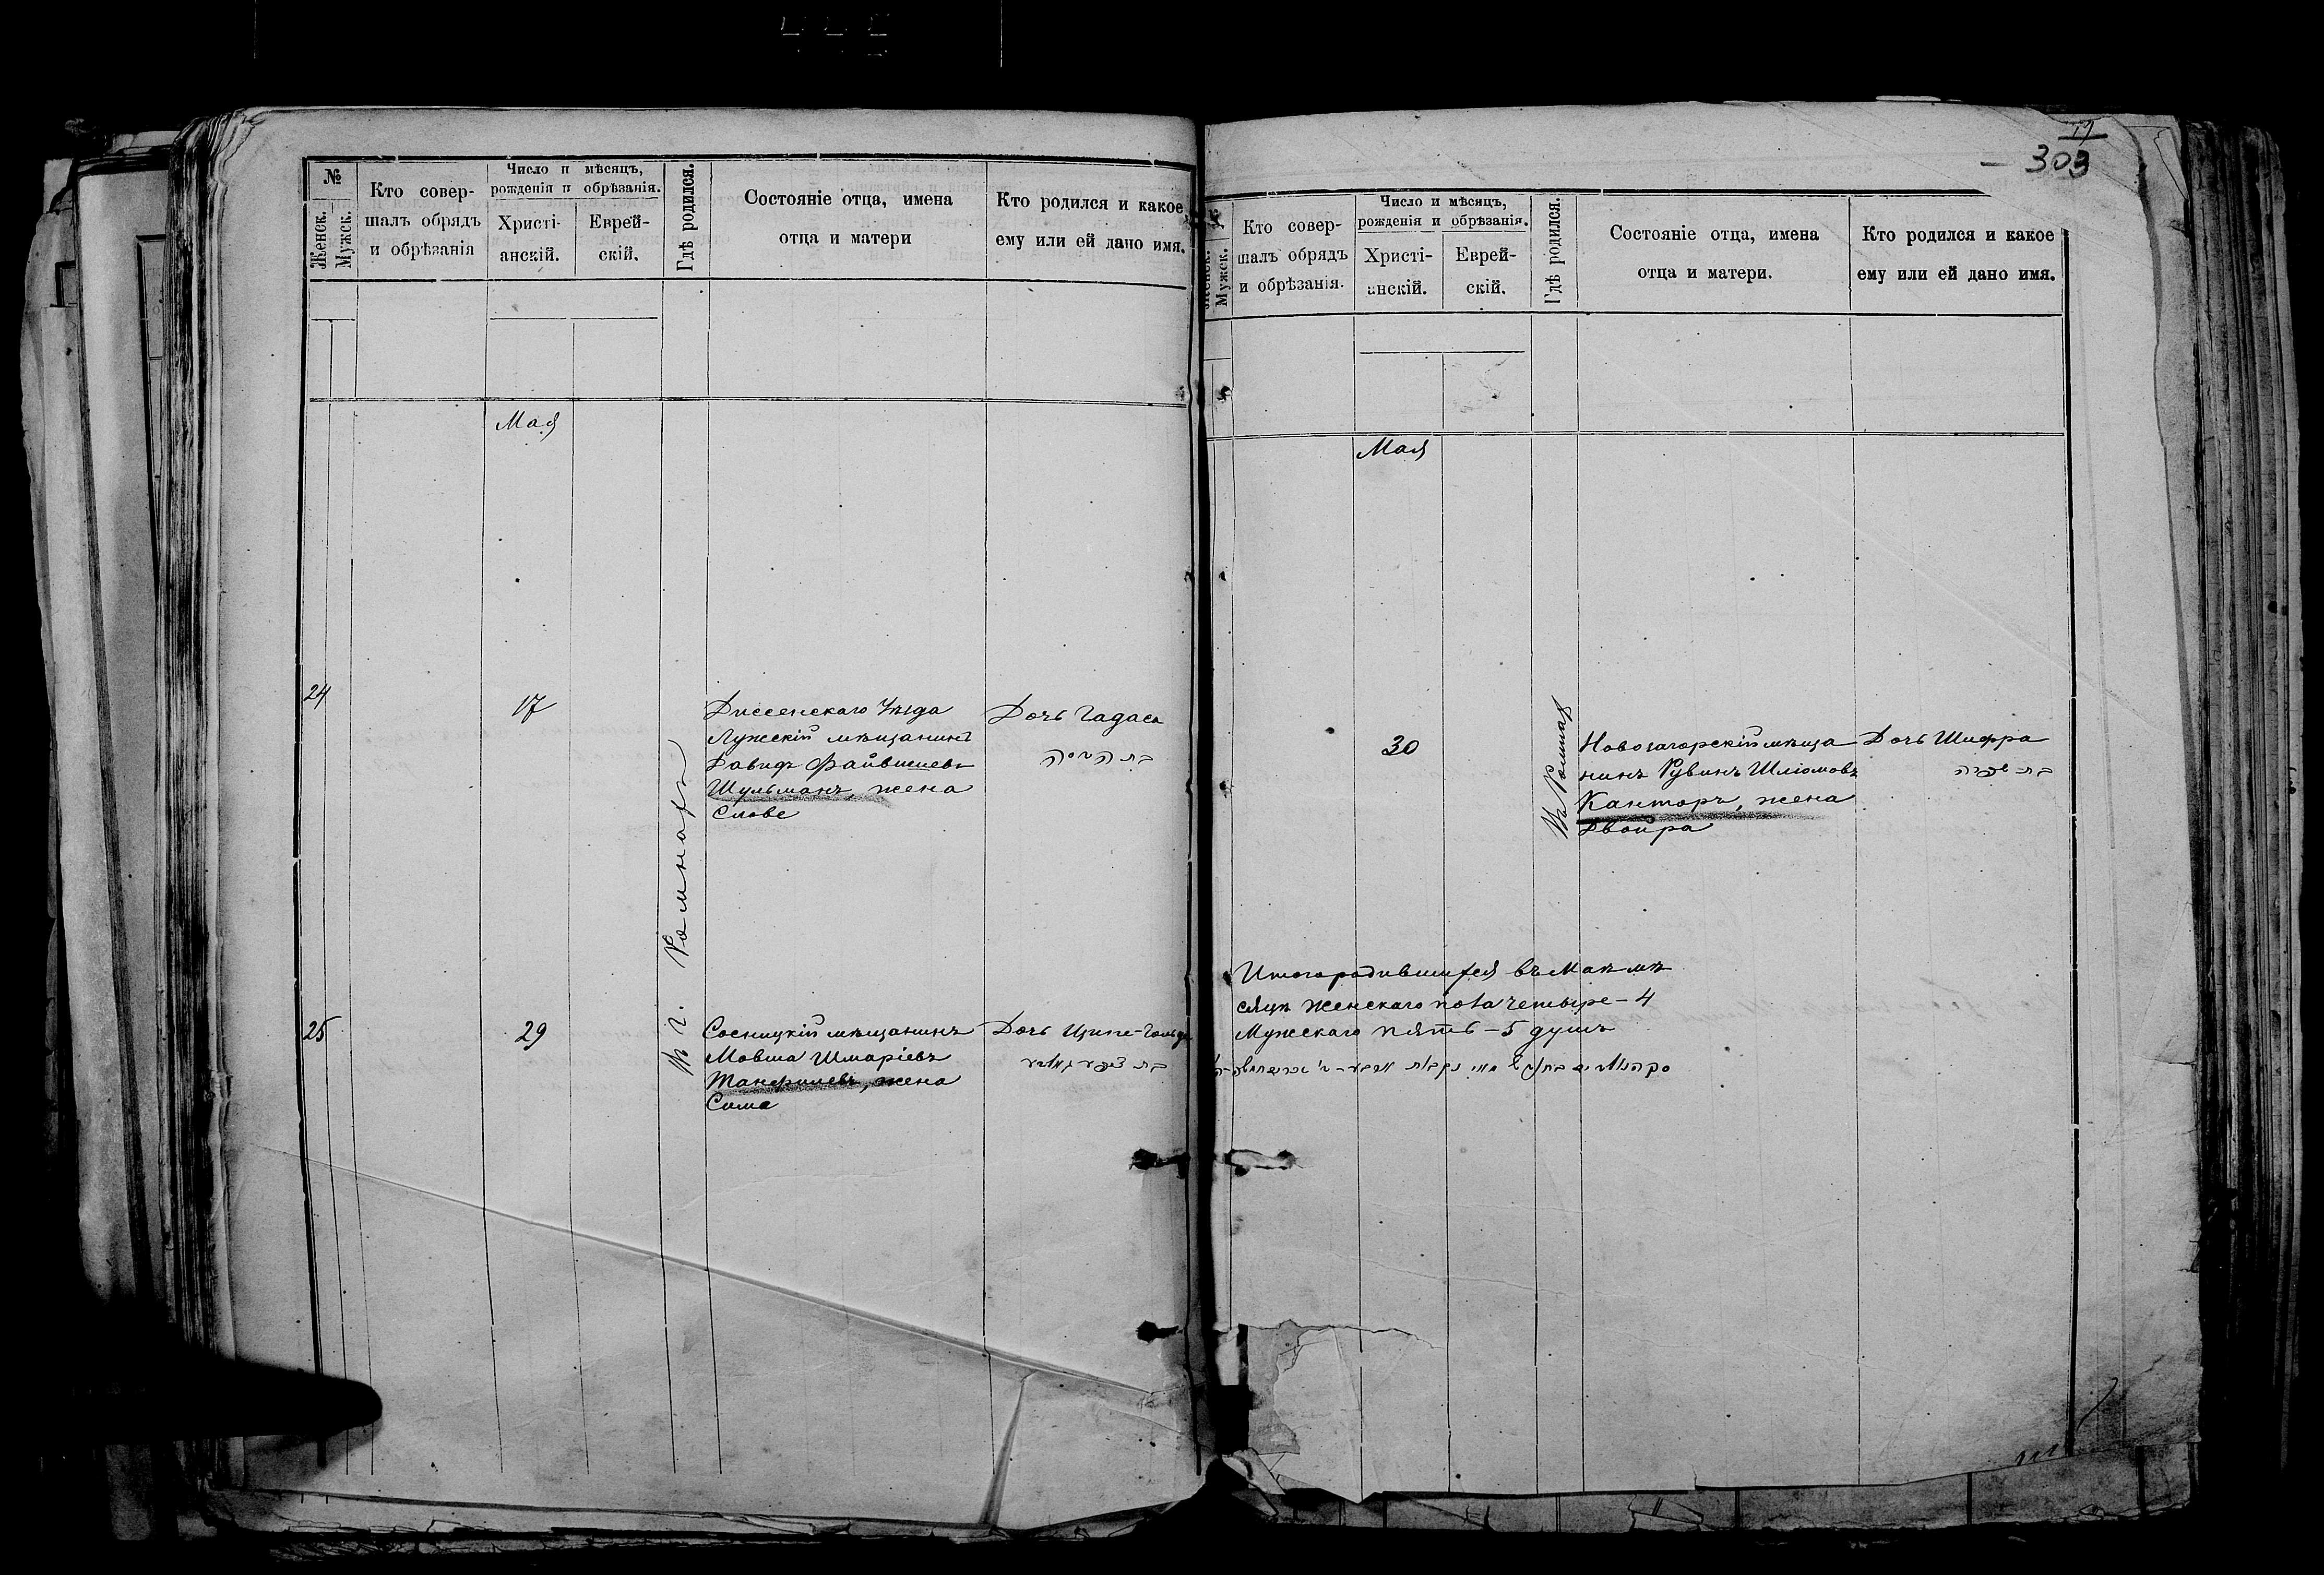 №
Женск.
Мужск.
Кто совер-
шалъ обрядъ
и обрѣзанія
Число и мѣсяцъ,
рожденія и обрѣзанія.
Христі-
анскій.
Еврей-
скій.
Гдѣ родился.
Состояніе отца, имена
отца и матери
Кто родился и какое
ему или ей дано имя.
Мая
24
17
Диссенскаго Уѣзда
Лужскій мѣщанинъ
Давидъ Файвишевъ
Шульманъ, жена
Славе
Дочь Гадаса
בת הדסה
Въ г. Ромнахъ
25
29
Сосницкій мѣщанинъ
Мовша Шмаріевъ
жена
Сима
Дочь Ципе-Гольда
303
Мужск.
Кто совер-
шалъ обрядъ
и обрѣзанія.
Число и мѣсяцъ,
рожденія и обрѣзанія.
Христі-
анскій.
Еврей-
скій.
Гдѣ родился.
Состояніе отца, имена
отца и матери.
Кто родился и какое
ему или ей дано имя.
Мая
30
Въ
Новозагорскій мѣща
нинъ Рувинъ Шліомовъ
Канторъ, жена
Двойра
Дочь Шифра
בת שפרה
Итого родившихся въ Маѣ мѣ
сяцѣ Женскаго пола четыре - 4
Мужескаго пять - 5 душъ